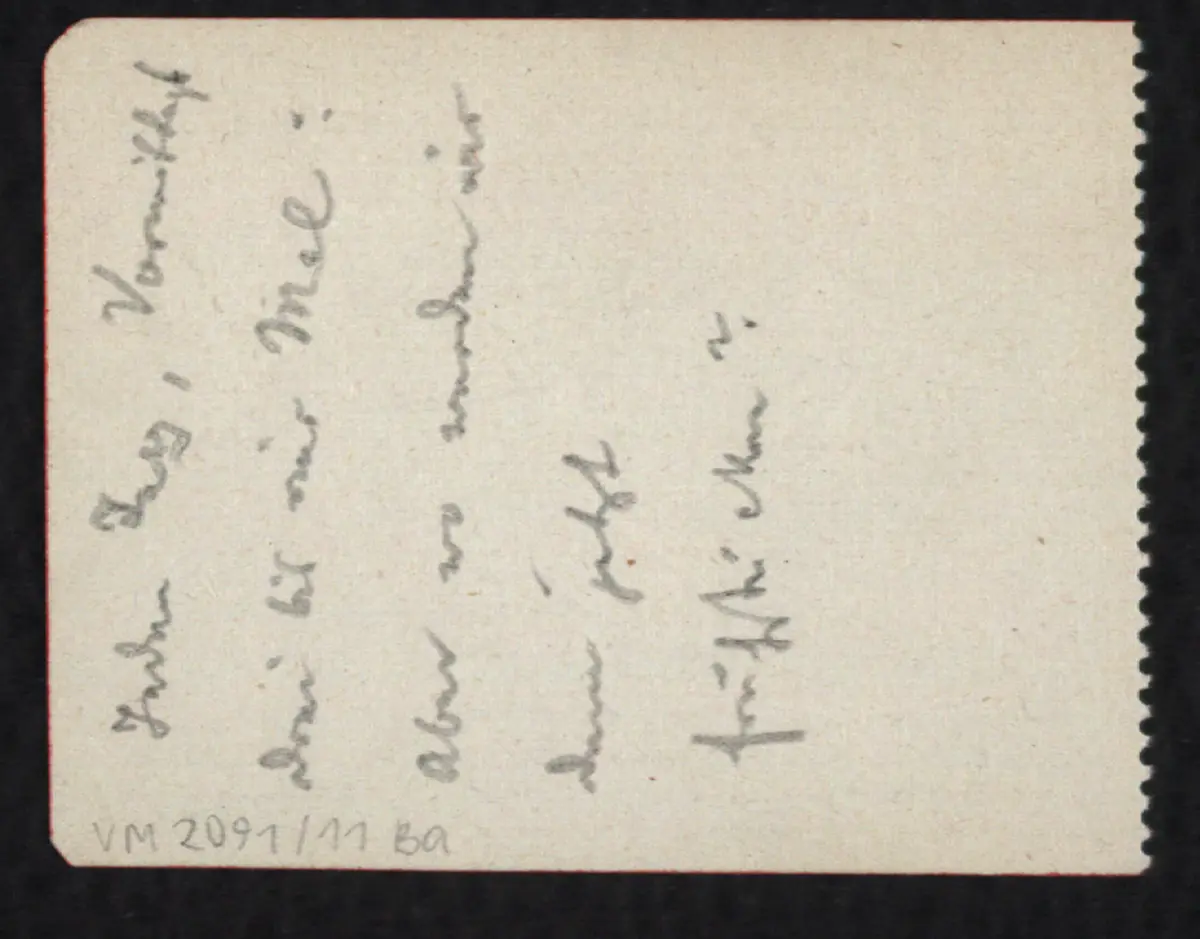 Jeden Tag, Vormittags
drei bis vier Mal:
Aber wo werden wir
denn jetzt
frühstücken?
VM 2091/11 Ba